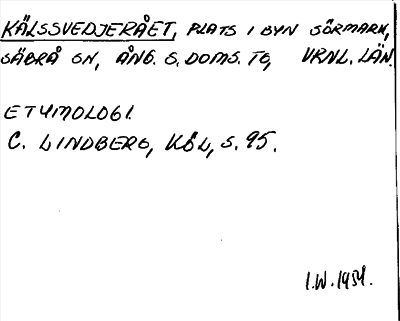 KÄLSSVEDJERÅET, PLATS I BYN SÖRMARK,
SÄBRÅ SN, ÅNG. S. DOMS. TG, VRNL. LÄN.
ETYMOLOGI.
C. LINDBERG, KÖL, S. 95.
I.W. 1934.